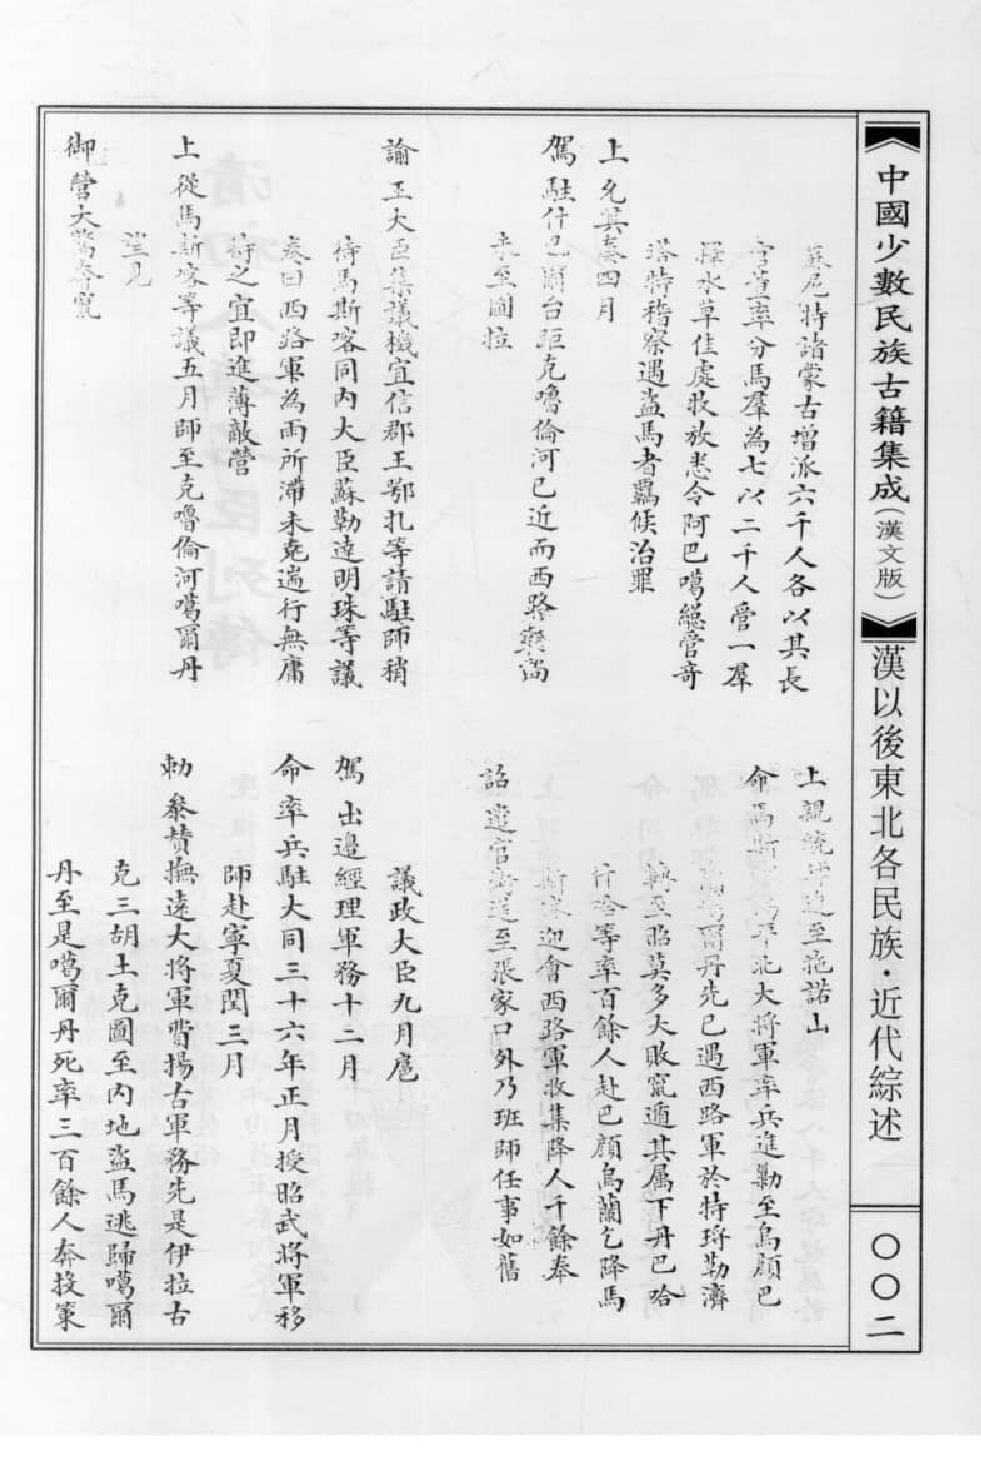 中國少數民族古籍集成(漢文版)
漢以後東北各民族·近代綜述
〇〇二
蘇尼特諸蒙古增派六千人各以其長
官董率分馬群為七以二千人管一羣
擇水草佳處牧放悉令阿巴噶總管奇
塔特稽察遇盜馬者羈候治罪
上允其奏四月
駕駐什巴爾台距克嚕倫河已近而西路
來至圖拉
諭王大臣集議機宜信郡王鄂扎等請駐師稍
待馬斯喀同內大臣蘇勒達明珠等議
奏曰西路軍為雨所滯未克遄行無庸
待之宜即進薄敵營
上從馬斯喀等議五月師至克嚕倫河噶爾丹
望見
御營大驚奔竄
上親統師追至拖諾山
命馬斯喀為平北大將軍率兵進勦至烏顏巴
噶爾丹先已遇西路軍於特埒勒濟
轉至昭莫多大敗竄遁其屬下丹巴哈
什哈等率百餘人赴巴顏烏蘭乞降馬
斯喀迎會西路軍收集降人千餘奉
詔遣官送至張家口外乃班師任事如舊
議政大臣九月扈
駕出邊經理軍務十二月
命率兵駐大同三十六年正月授昭武將軍移
師赴寧夏閏三月
勅參贊撫遠大將軍費揚古軍務先是伊拉古
克三胡土克圖至內地盜馬逃歸噶爾
丹至是噶爾丹死率三百餘人奔投策